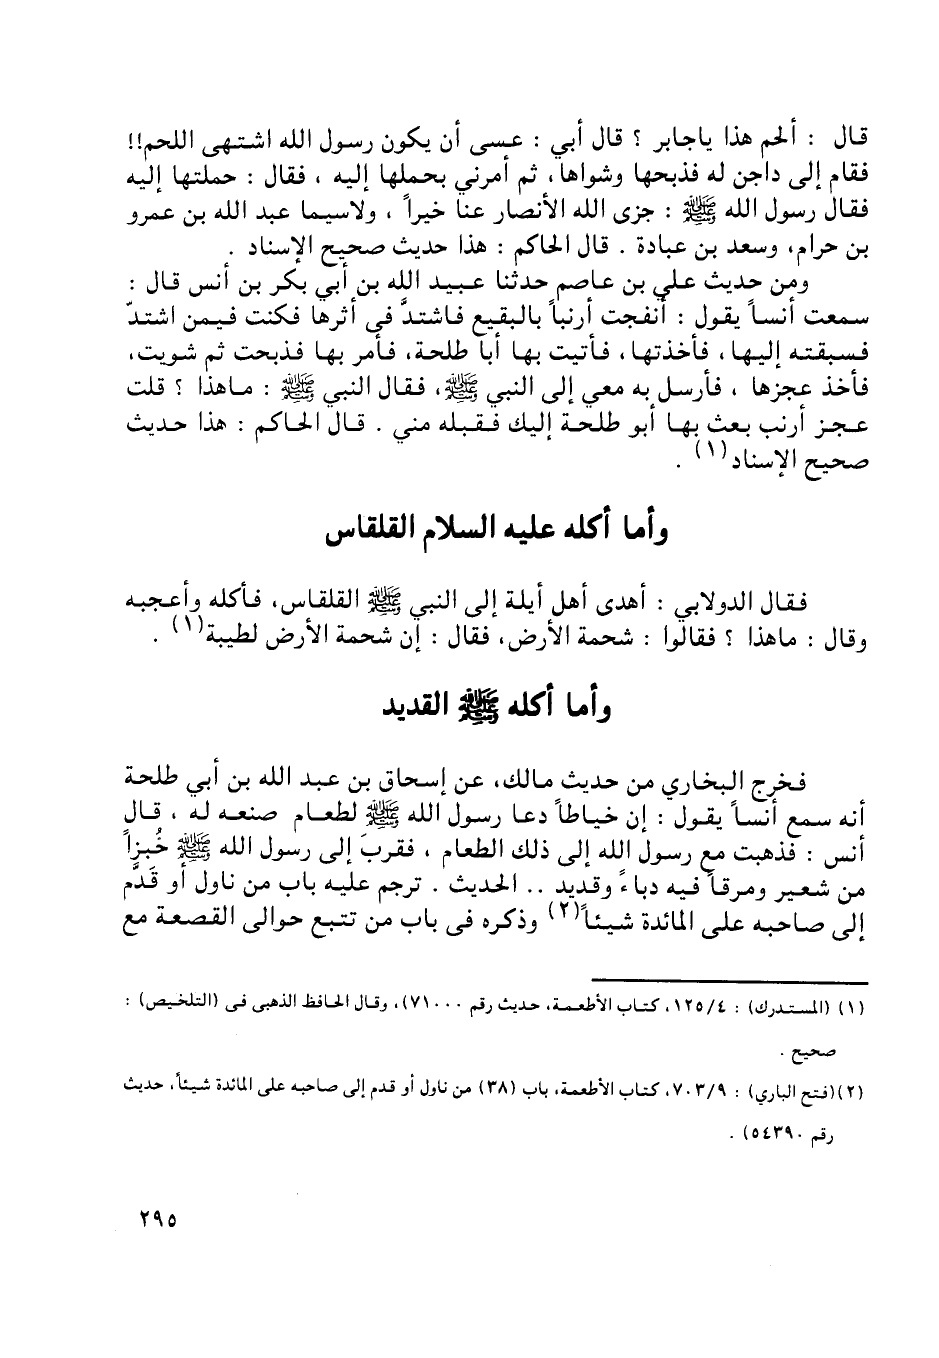 قال : ألحم هذا ياجابر ؟ قال أبي : عسى أن يكون رسول الله اشتهى اللحم!!
فقام إلى داجن له فذبحها وشواها، ثم أمرني بحملها إليه ، فقال : حملتها إليه
فقال رسول الله ﷺ : جزى الله الأنصار عنا خيراً ، ولاسيما عبد الله بن عمرو
بن حرام، وسعد بن عبادة . قال الحاكم : هذا حديث صحيح الإسناد .
ومن حديث علي بن عاصم حدثنا عبيد الله بن أبي بكر بن أنس قال :
سمعت أنساً يقول : أنفجت أرنباً بالبقيع فاشتدَّ فى أثرها فكنت فيمن اشتدّ
فسبقته إليها، فأخذتها، فأتيت بها أبا طلحة، فأمر بها فذبحت ثم شويت،
فأخذ عجزها ، فأرسل به معي إلى النبي ﷺ، فقال النبي ﷺ : ماهذا ؟ قلت
عجز أرنب بعث بها أبو طلحة إليك فقبله مني . قال الحاكم : هذا حديث
صحيح الإسناد(١) .
وأما أكله عليه السلام القلقاس
فقال الدولابي : أهدى أهل أيلة إلى النبي ﷺ القلقاس، فأكله وأعجبه
وقال : ماهذا ؟ فقالوا : شحمة الأرض، فقال : إن شحمة الأرض لطيبة(١) .
وأما أكله ﷺ القديد
فخرج البخاري من حديث مالك، عن إسحاق بن عبد الله بن أبي طلحة
أنه سمع أنساً يقول : إن خياطاً دعا رسول الله ﷺ لطعام صنعه له ، قال
أنس : فذهبت مع رسول الله إلى ذلك الطعام ، فقربَ إلى رسول الله ﷺ خُبزاً
من شعير ومرقاً فيه دباءً وقديد .. الحديث . ترجم عليه باب من ناول أو قَدَّم
إلى صاحبه على المائدة شيئاً(٢) وذكره فى باب من تتبع حوالى القصعة مع
(١) (المستدرك) : ١٢٥/٤، كتاب الأطعمة، حديث رقم ٧١٠٠٠)، وقال الحافظ الذهبى فى (التلخيص) :
صحيح .
(٢)(فتح الباري) : ٧٠٣/٩، كتاب الأطعمة، باب (٣٨) من ناول أو قدم إلى صاحبه على المائدة شيئاً، حديث
رقم ٥٤٣٩٠) .
٢٩٥